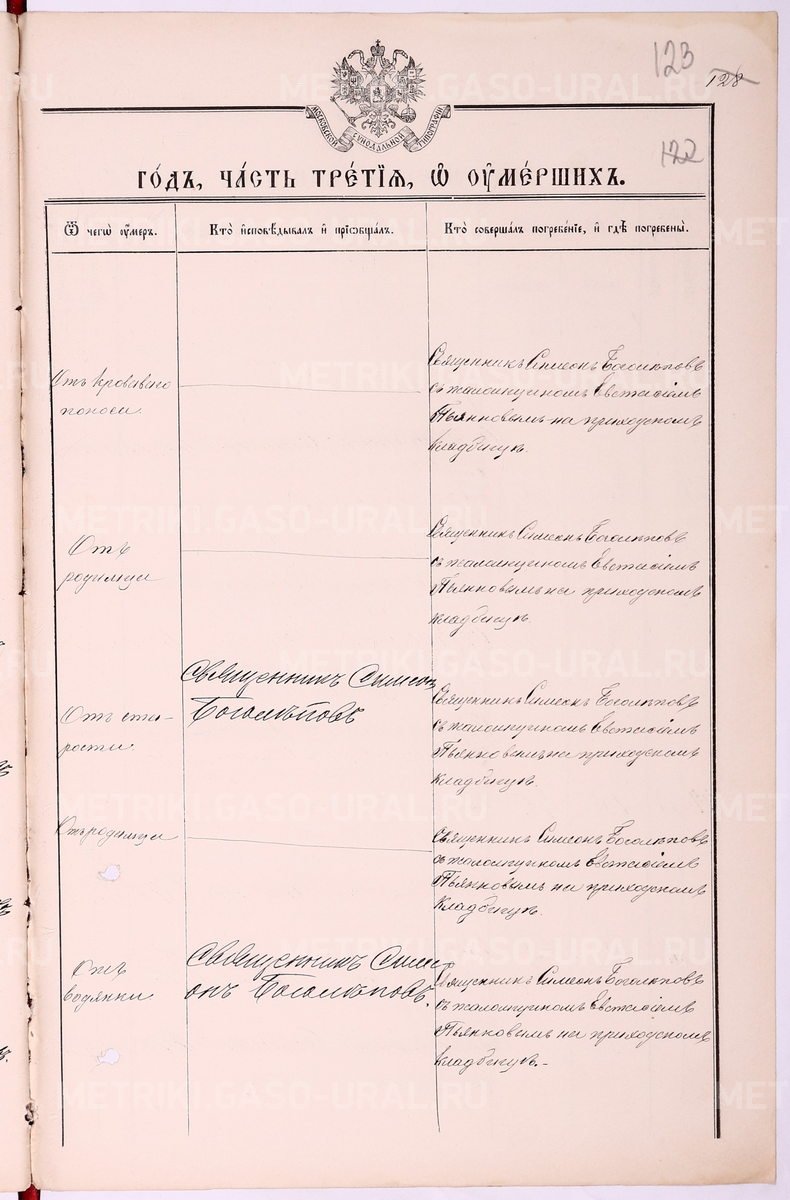 123
128
122
МОСКОВСКОЙ СѴНОДАЛЬНОЙ ТИПОГРАФІИ
ГО́ДЪ, ЧА́СТЬ ТРЕ́ТІЯ, Ѡ҆ ОУ҆МЕ́РШИХЪ.
Ѿ чегѡ̀ оу҆́меръ.
Кто̀ и҆сповѣ́дывалъ и҆ прїѡбща́лъ.
Кто̀ соверша́лъ погребе́нїе, и҆ гдѣ̀ погребены̀.
Отъ кроваваго
поноса
Священникъ Симеонъ Боголѣповъ
съ псаломщикомъ Евстафіемъ
Пьянковымъ на приходскомъ
кладбищѣ.
Отъ
родимца
Священникъ Симеонъ Боголѣповъ
съ псаломщикомъ Евстафіемъ
Пьянковымъ на приходскомъ
кладбищѣ.
Отъ ста-
рости
Священникъ Симеонъ
Боголѣповъ
Священникъ Симеонъ Боголѣповъ
съ псаломщикомъ Евстафіемъ
Пьянковымъ на приходскомъ
кладбищѣ.
Отъ родимца
Священникъ Симеонъ Боголѣповъ
съ псаломщикомъ Евстафіемъ
Пьянковымъ на приходскомъ
кладбищѣ.
Отъ
водянки
Священникъ Симе-
онъ Боголѣповъ.
Священникъ Симеонъ Боголѣповъ
съ псаломщикомъ Евстафіемъ
Пьянковымъ на приходскомъ
кладбищѣ.-
METRIKI.GASO-URAL.RU